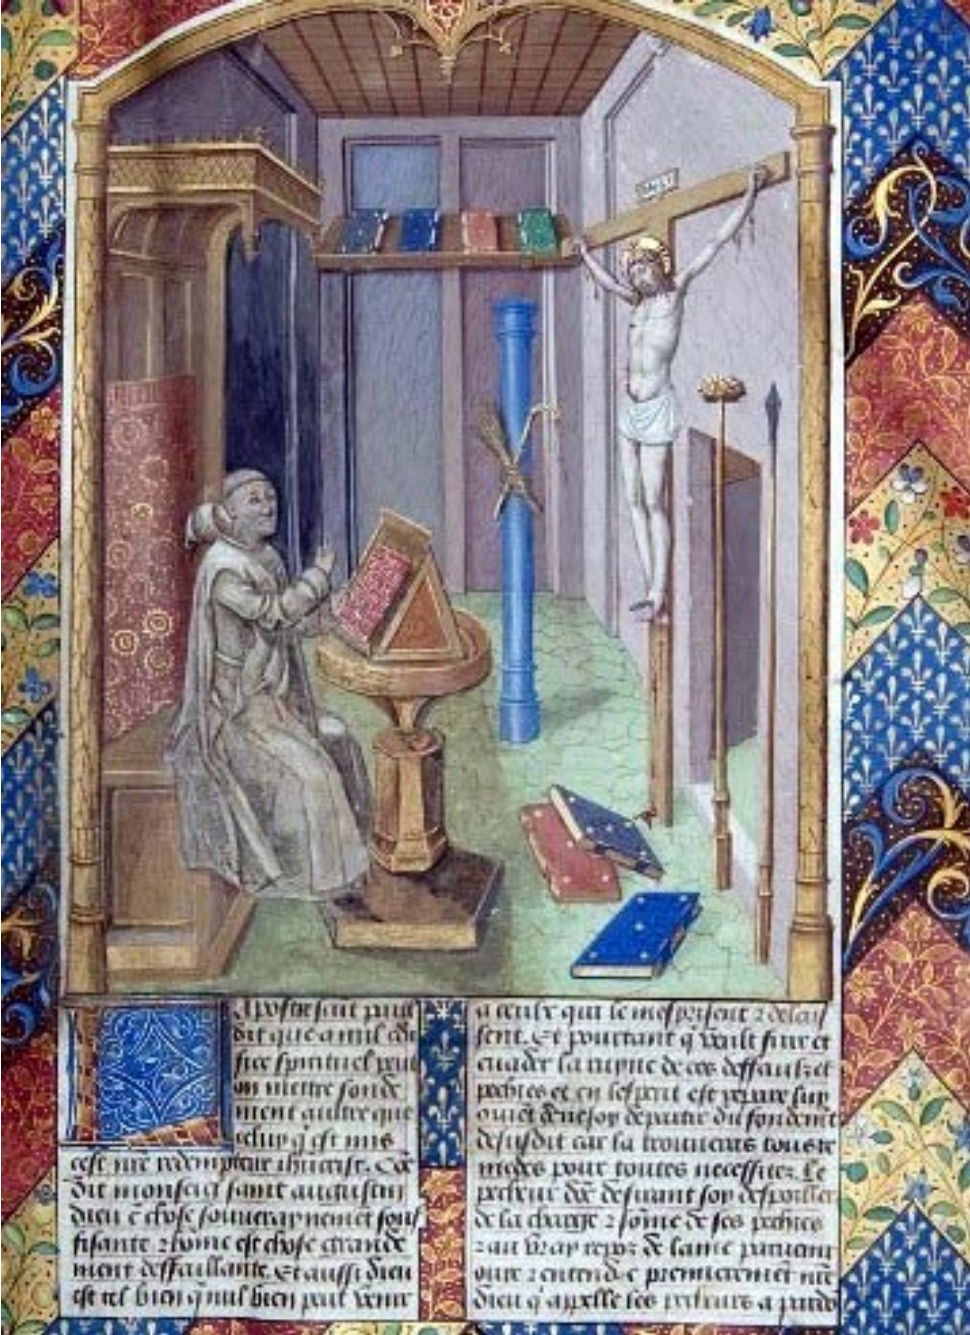 INRI
Apostre saint paul
dit que a nul edi
fice spirituel peut
on mettre fonde
ment aultre que
celuy q̃ est mis
cest n̄re redempteur ihūcrist. Cõe
dit monseig̃ saint augustin
dieu ē chose souverainemēt souf
fisante ⁊ home est chose grande
ment deffaillante. Et aussi dieu
est tel bien q̃ nul bien peut venir
a ceulx qui le mesprisent ⁊ delais
sent. Et pourtant q̃ veult fuir et
euader la ruyne de ces deffaultz et
pechies et en lesperit est
du fondemēt
desusdit car la trouueras tous re
medes pour toutes necessitez. Le
pecheur dōc desirant soy despoiller
de la charge ⁊ sōme de ses pechies
⁊ au vray repoz de lame paruenir
oure ⁊ entende premieremēt n̄re
dieu q̃ appelle les pecheurs a pardō